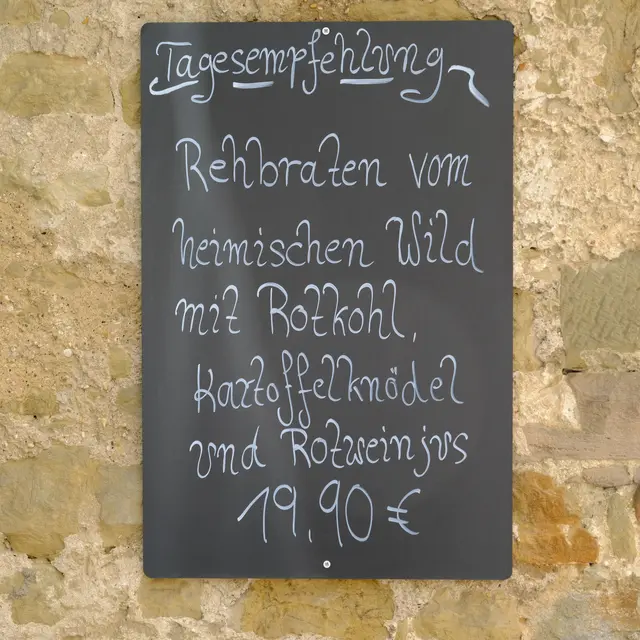 Tagesempfehlung
Rehbraten vom
heimischen Wild
mit Rotkohl,
Kartoffelknödel
und Rotweinjus
19,90 €